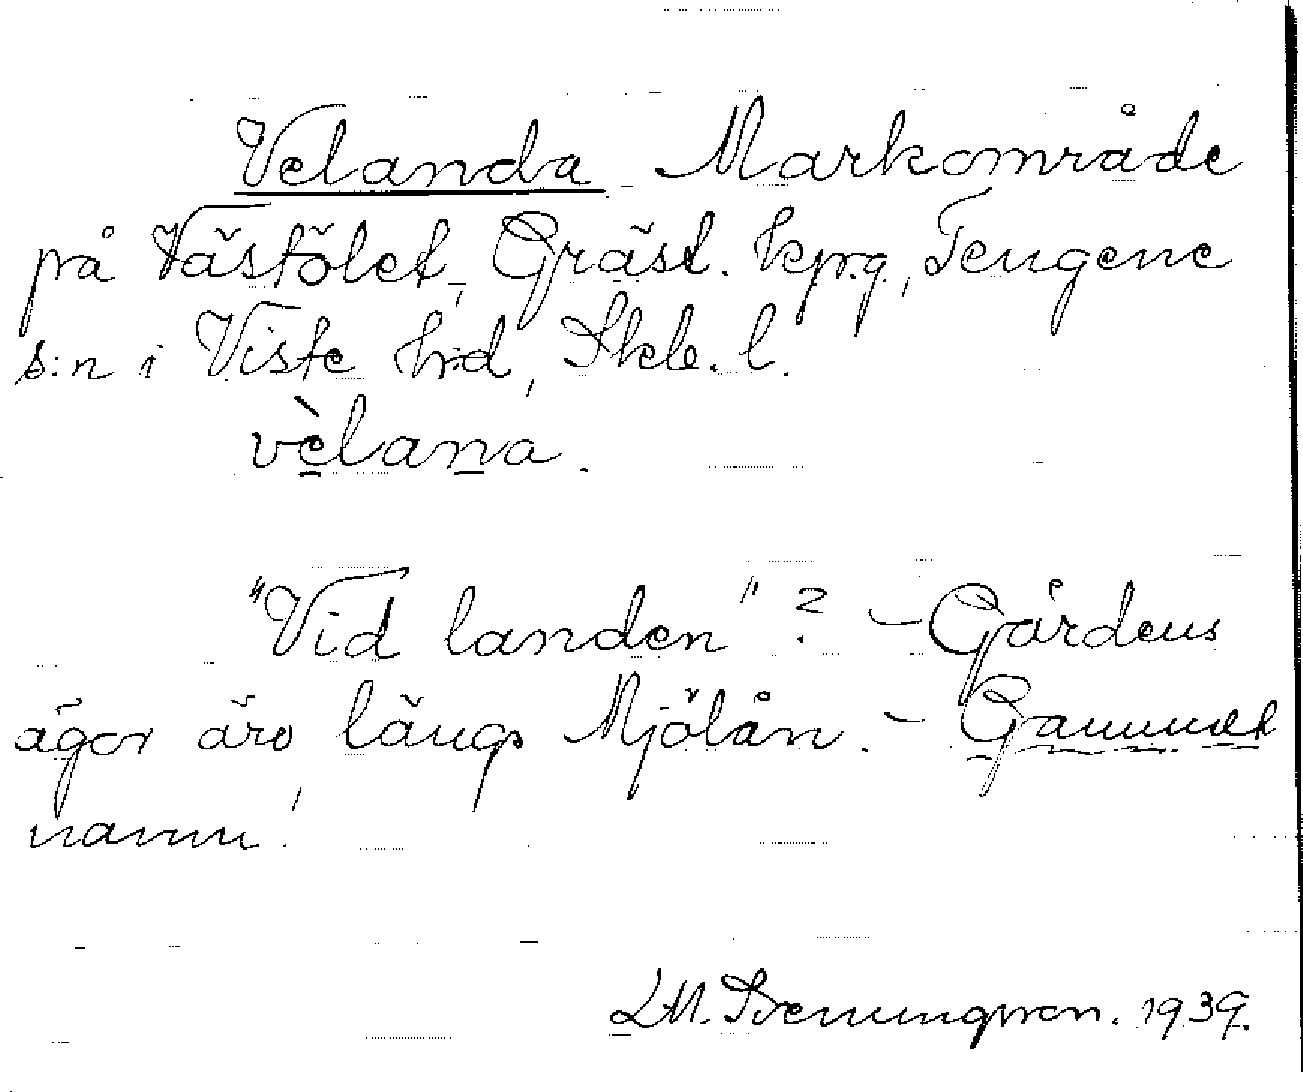 Velanda Markområde
på Västölet, Gräst. kprg, Tengene
s:n i Viste hrd, Skb. l.
vèlana.
"Vid landen"? – Gårdens
ägor äro längs Mjölån. – Gammalt
namn!
LM. Svenungsson. 1939.